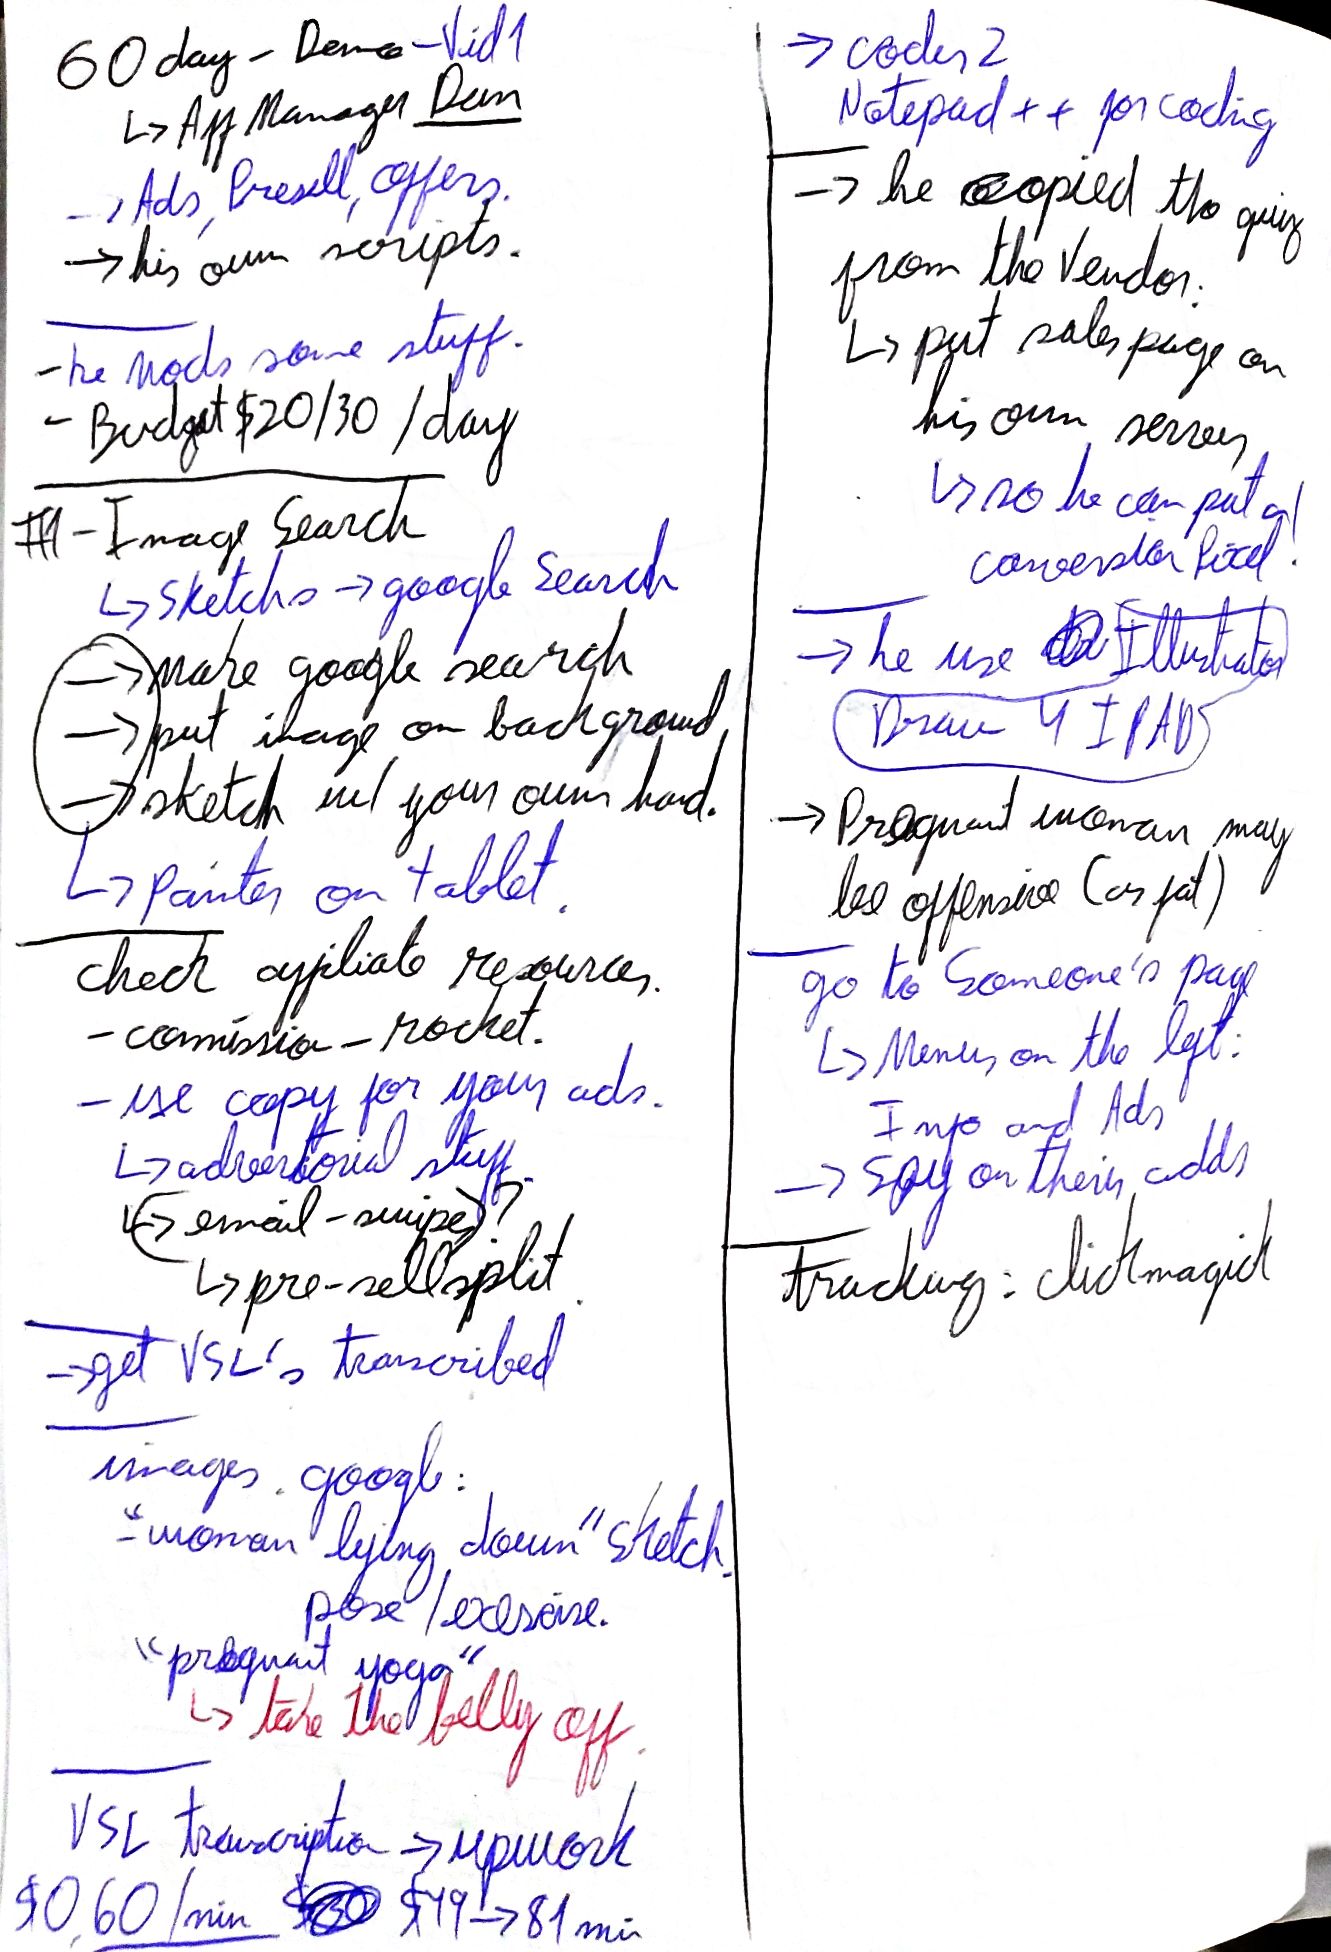 60 day - Demo - Vid 1
↳ Aff Manager Dan
→ Ads, Presell, offers.
→ his own scripts.
- he mods some stuff.
- Budget $20/30 /day
#1 - Image Search
↳ Sketchs → google Search
→ make google search
→ put image on background
→ sketch w/ your own hand.
↳ Painter on tablet.
check affiliate resources.
- comission - rocket.
- use copy for your ads.
↳ advertorial stuff.
(↳ email - swipe)?
↳ pre-sell split.
→ get VSL's transcribed
images.google:
- "woman lying down" sketch
pose / exercise.
"pregnant yoga"
↳ take the belly off.
VSL transcription → upwork
$0,60/min $49 → 81 min
→ coder 2
Notepad ++ for coding
→ he copied the quiz
from the Vendor:
↳ put sales page on
his own server
↳ so he can put a
conversion Pixel!
→ he use Illustrator
Draw 4 IPADS
→ Pregnant woman may
be offensive (as fat)
go to Someone's page
↳ Menus on the left:
Info and Ads
→ Spy on their adds
tracking: clickmagick